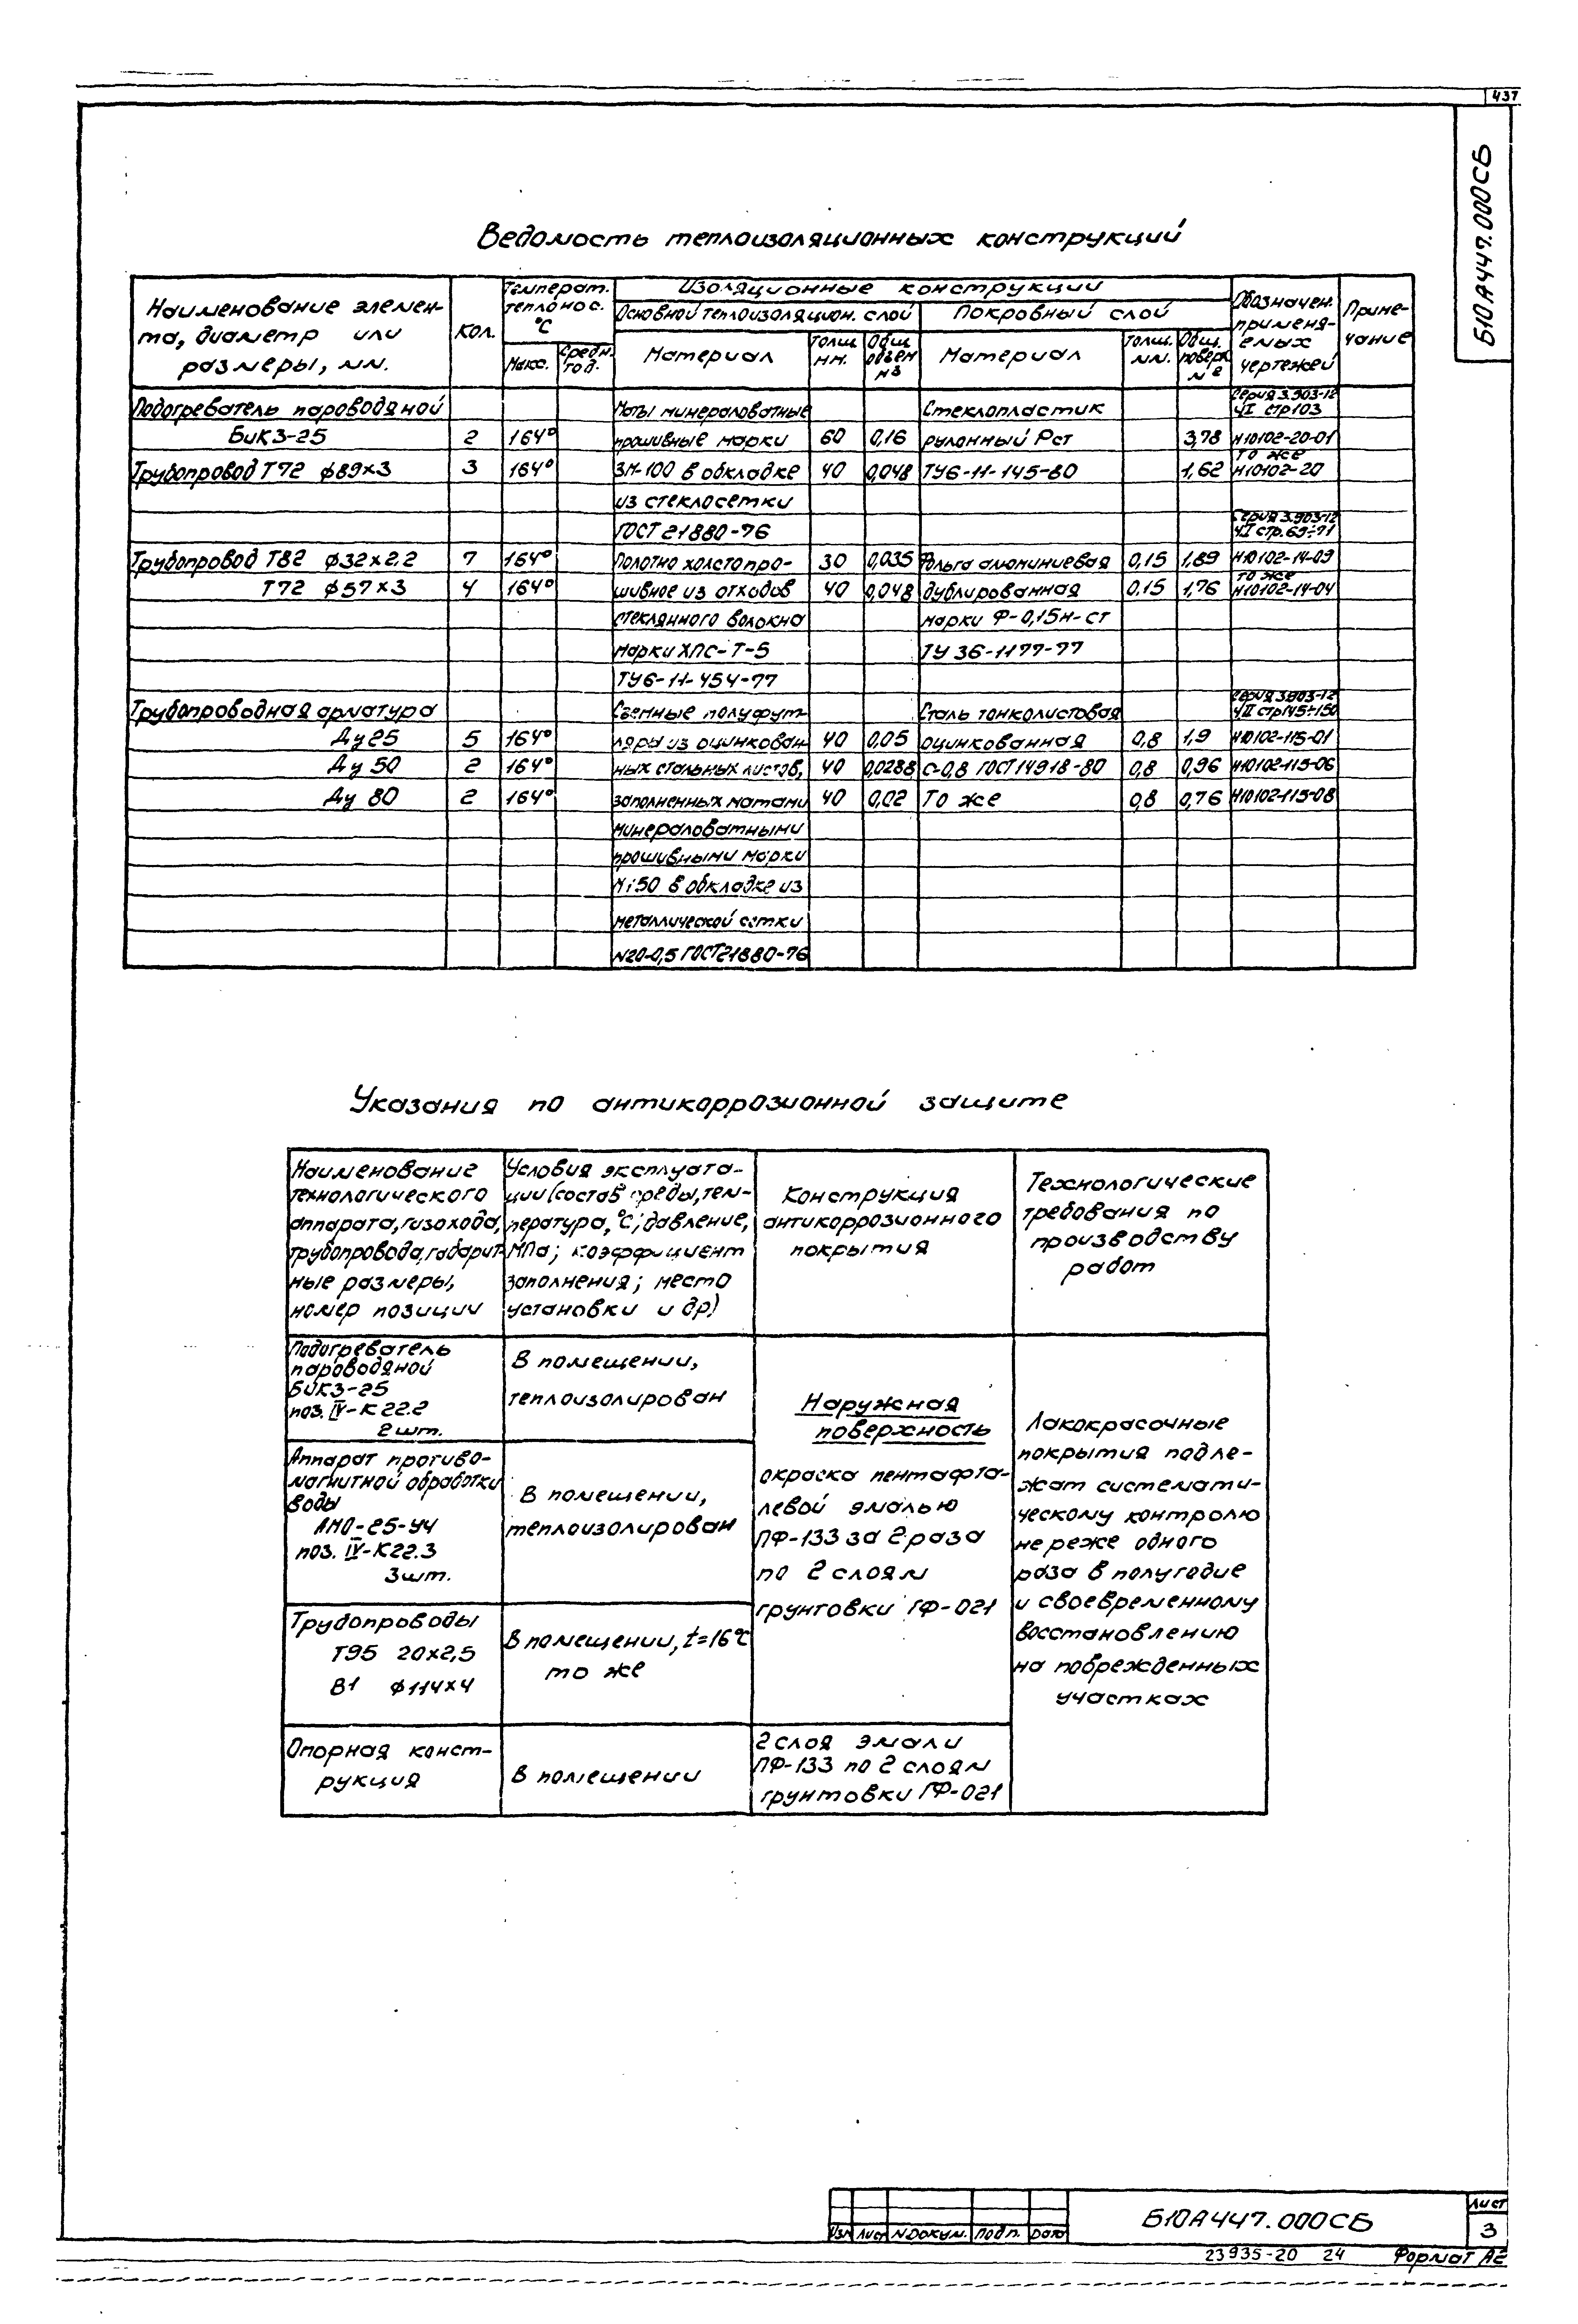 437
Б10А447.000СБ
Ведомость теплоизоляционных конструкций
Наименование элемен-
та, диаметр или
размеры, мм.
Кол.
Температ.
теплонос.
°С
Макс.
Средн.
год.
Изоляционные конструкции
Основной теплоизоляцион. слой
Покровный слой
Материал
Толщ.
мм.
Общ.
объем
м3
Материал
Толщ.
мм.
Общ.
поверх
м2
Обозначен.
применя-
емых
чертежей
Приме-
чание
Подогреватель пароводяной Маты минераловатные Стеклопластик Серия 3.903-12 чI стр103
БиКЗ-25 2 164° прошивные марки 60 0,16 рулонный Рст 3,78 Н10102-20-01
Трубопровод Т72 ф89х3 3 164° ЗМ-100 в обкладке 40 0,048 ТУ6-11-145-80 1,62 то же Н10102-20
из стеклосетки
ГОСТ 21880-76 Серия 3.903-12 чI стр.69÷71
Трубопровод Т82 ф32х2.2 7 164° Полотно холстопро- 30 0,035 Фольга алюминиевая 0,15 1,89 Н10102-14-09
Т72 ф57х3 4 164° шивное из отходов 40 0,048 дублированная 0.15 1,76 то же Н10102-14-04
стеклянного волокна марки Ф-0,15н-ст
марки ХПС-Т-5 ТУ 36-1177-77
ТУ6-11-454-77
Трубопроводная арматура Съемные полуфут- Сталь тонколистовая Серия 3.903-12 чII стр145÷150
Ду25 5 164° ляры из оцинкован 40 0,05 оцинкованная 0,8 1,9 Н10102-115-01
Ду 50 2 164° ных стальных листов, 40 0,0288 С-0,8 ГОСТ14918-80 0,8 0,96 Н10102-115-06
Ду 80 2 164° заполненных матами 40 0,02 То же 0,8 0,76 Н10102-115-08
минераловатными
прошивными марки
в обкладке из
металлической сетки
N20-0,5 ГОСТ21880-76
Указания по антикоррозионной защите
Наименование
технологического
аппарата, газохода,
трубопровода, габарит-
ные размеры,
номер позиции
Условия эксплуата-
ции (состав среды, тем-
пература, °С; давление,
МПа; коэффициент
заполнения; место
установки и др)
Конструкция
антикоррозионного
покрытия
Технологические
требования по
производству
работ
Подогреватель
пароводяной
БИКЗ-25
поз. IV-К22.2
2 шт.
В помещении,
теплоизолирован
Аппарат противо-
магнитной обработки
воды
АМО-25-УЧ
поз. IV-К22.3
3 шт.
В помещении,
теплоизолирован
Трубопроводы
Т95 20х2,5
В1 ф114х4
В помещении, t=16°С
то же
Наружная
поверхность
окраска пентафта-
левой эмалью
ПФ-133 за 2 раза
по 2 слоям
грунтовки ГФ-021
Лакокрасочные
покрытия подле-
жат системати-
ческому контролю
не реже одного
раза в полугодие
и своевременному
восстановлению
на побрежденных
участках
Опорная конст-
рукция
В помещении
2 слоя эмали
ПФ-133 по 2 слоям
грунтовки ГФ-021
Изм Лист N докум. Подп. Дата
Б10А447.000СБ
Лист
3
23935-20 24 Формат А2